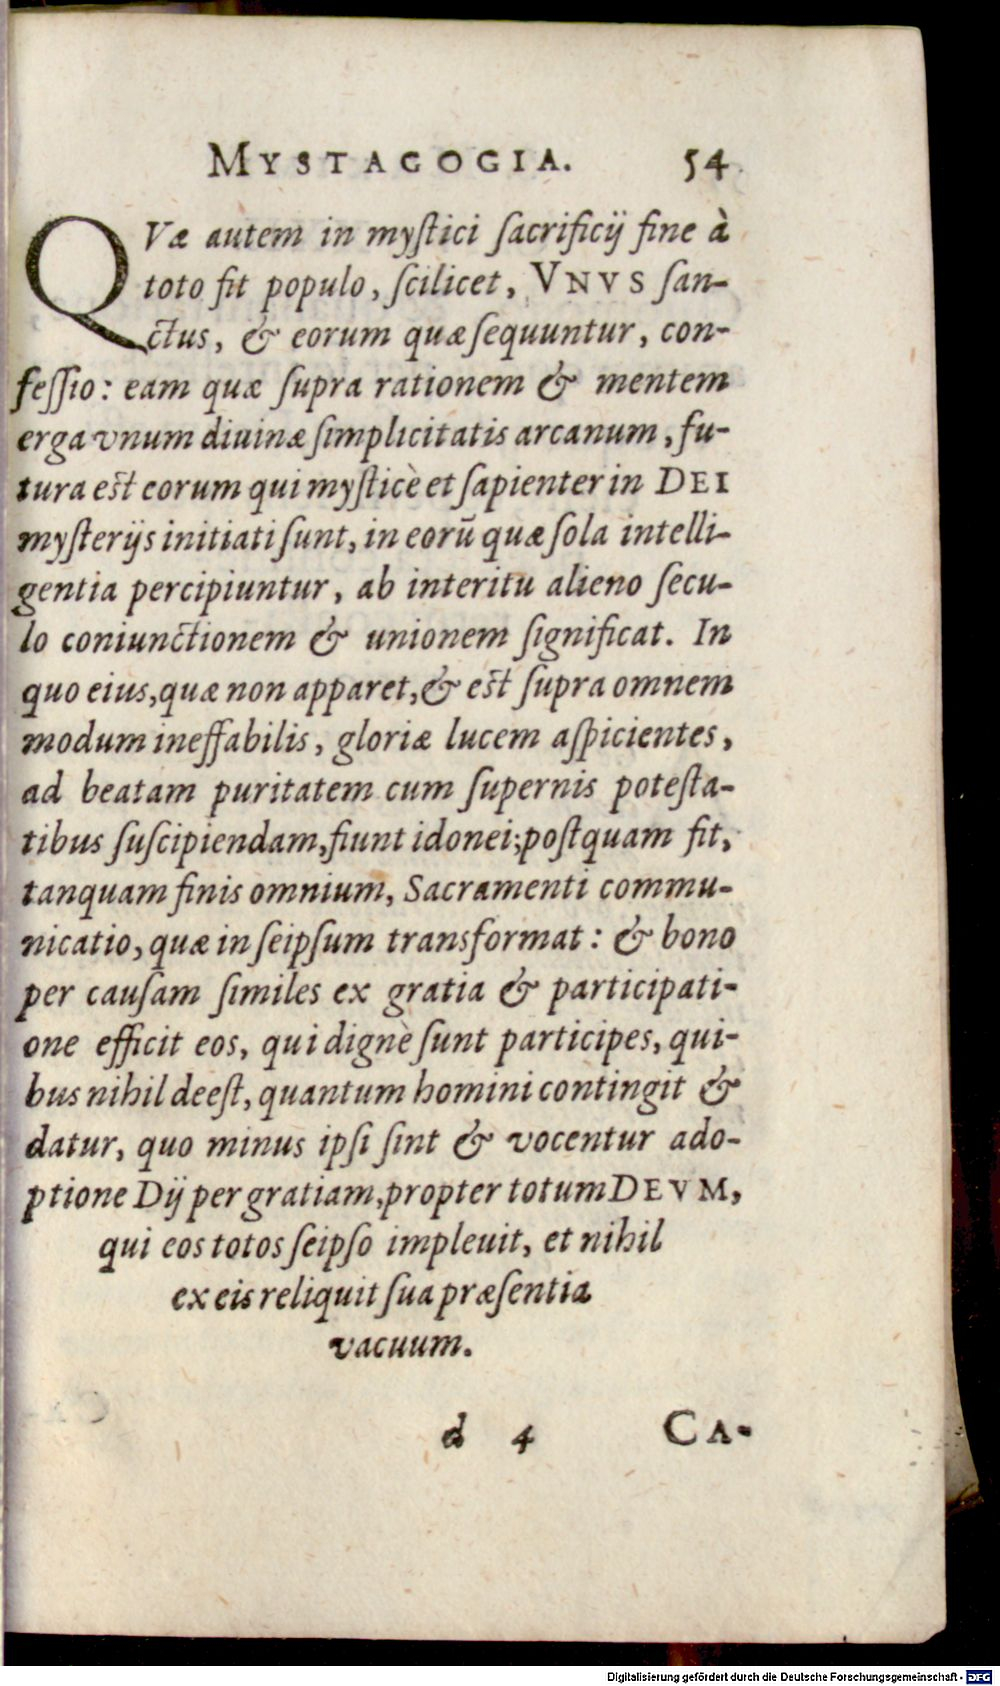 MYSTAGOGIA. 54
QVæ autem in myſtici ſacrificij fine à
toto fit populo, ſcilicet, VNVS ſan-
ctus, & eorum quæ ſequuntur, con-
feſſio: eam quæ ſupra rationem & mentem
erga vnum diuinæ ſimplicitatis arcanum, fu-
tura est eorum qui myſticè et ſapienter in DEI
myſterijs initiati ſunt, in eorū quæ ſola intelli-
gentia percipiuntur, ab interitu alieno ſecu-
lo coniunctionem & unionem ſignificat. In
quo eius, quæ non apparet, & est ſupra omnem
modum ineffabilis, gloriæ lucem aſpicientes,
ad beatam puritatem cum ſupernis poteſta-
tibus ſuſcipiendam, fiunt idonei; poſtquam fit,
tanquam finis omnium, Sacramenti commu-
nicatio, quæ in ſeipſum transformat: & bono
per cauſam ſimiles ex gratia & participati-
one efficit eos, qui dignè ſunt participes, qui-
bus nihil deeſt, quantum homini contingit &
datur, quo minus ipſi ſint & vocentur ado-
ptione Dij per gratiam, propter totum DEVM,
qui eos totos ſeipſo impleuit, et nihil
ex eis reliquit ſua præſentia
vacuum.
d 4 CA-
Digitalisierung gefördert durch die Deutsche Forschungsgemeinschaft - DFG